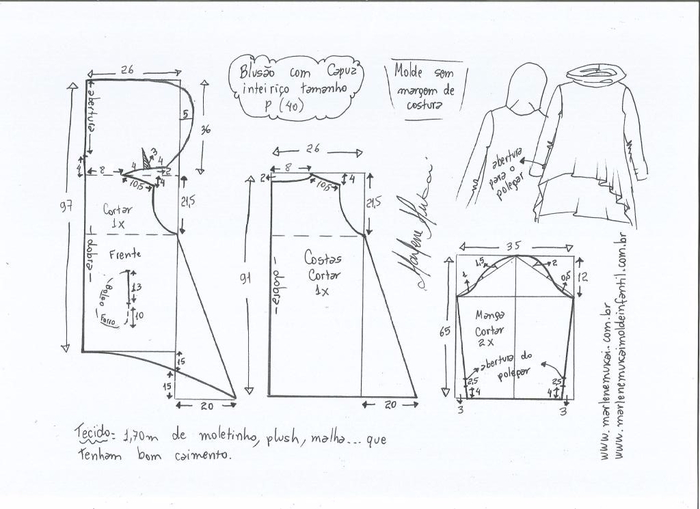 Blusão com Capuz
inteiriço tamanho
P (40)
Molde sem
margem de
costura
26
abertura
5
36
3
4
4
2
4
8
10,5
4
97
21,5
Cortar
1x
dobra
Frente
Bolso
Forro
13
10
15
15
20
26
8
2
10,5
4
21,5
91
Costas
Cortar
1x
dobra
20
Marlene Mukai
abertura
para o
polegar
35
1,5
2
1
0,5
12
65
Manga
Cortar
2x
abertura do
polegar
2,5
4
2,5
4
3
3
www.marlenemukai.com.br
www.marlenemukaimoldeinfantil.com.br
Tecido: 1,70m de moletinho, plush, malha... que
tenham bom caimento.